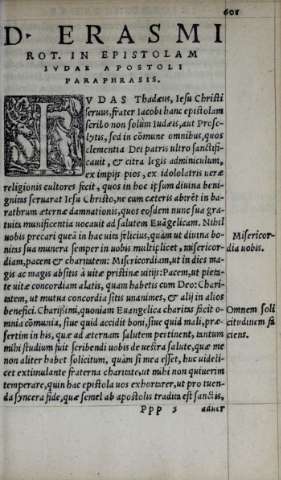 601
D. ERASMI
ROT. IN EPISTOLAM
IVDAE APOSTOLI
PARAPHRASIS.
IVDAS Thadæus, Iesu Christi
seruus, frater Iacobi hanc epistolam
scribo non solùm Iudæis, aut Prose-
lytis, sed in cōmune omnibus, quos
clementia Dei patris ultro sanctifi-
cauit, & citra legis adminiculum,
ex impijs pios, ex idololatris ueræ
religionis cultores fecit, quos in hoc ipsum diuina beni-
gnitas seruarat Iesu Christo, ne cum cæteris abirēt in ba-
rathrum æternæ damnationis, quos eosdem nunc sua gra-
tuita munificentia uocauit ad salutem Euāgelicam. Nihil
uobis precari queā in hac uita felicius, quàm ut diuina bo-
nitas sua munera semper in uobis multiplicet, misericor-
diam, pacem & charitatem: Misericordiam, ut in dies ma-
gis ac magis absitis à uitæ pristinæ uitijs: Pacem, ut pieta-
te uitæ concordiam alatis, quam habetis cum Deo: Chari-
tatem, ut mutua concordia sitis unanimes, & alij in alios
benefici. Charissimi, quoniam Euangelica charitas facit o-
mnia cōmunia, siue quid accidit boni, siue quid mali, præ-
sertim in his, quæ ad æternam salutem pertinent, tantum
mihi studium fuit scribendi uobis de uestra salute, quæ me
non aliter habet solicitum, quàm si mea esset, huc uideli-
cet extimulante fraterna charitate, ut mihi non quiuerim
temperare, quin hac epistola uos exhorarer, ut pro tuen-
da syncera fide, quæ semel ab apostolis tradita est sanctis,
Ppp 3
Misericor-
dia uobis.
Omnem soli
citudinem fa
ciens.